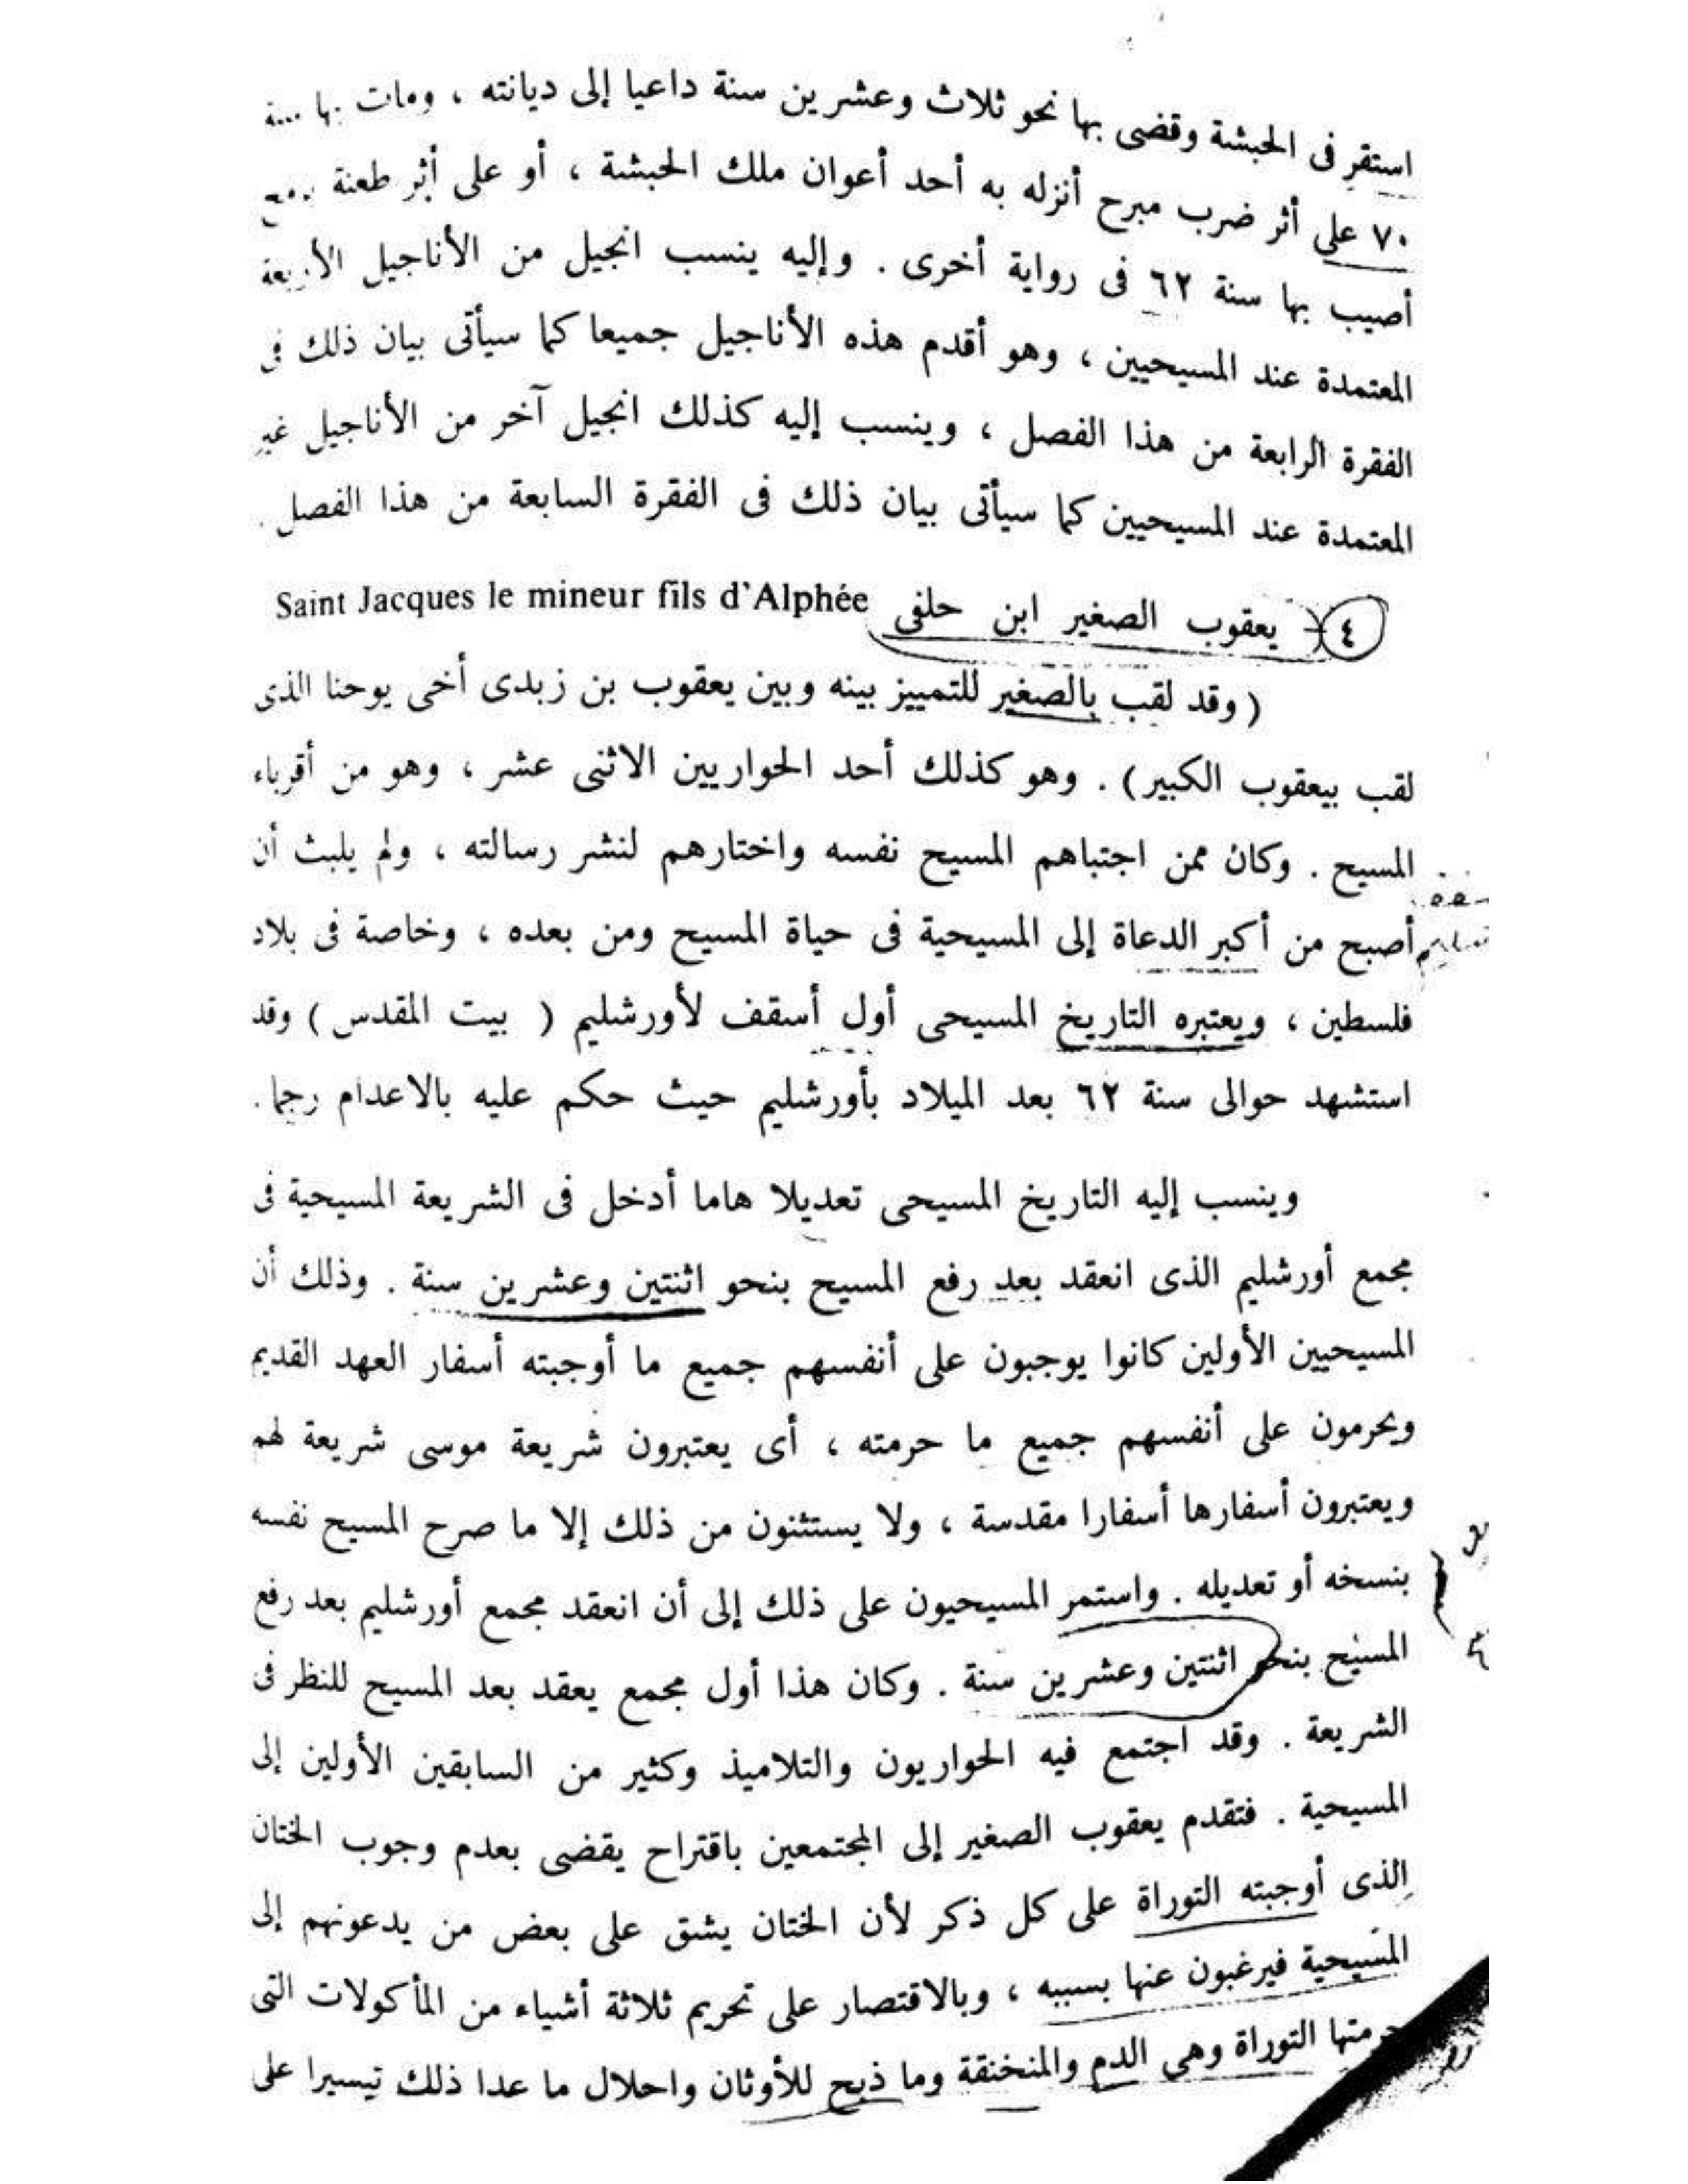 استقر فى الحبشة وقضى بها نحو ثلاث وعشرين سنة داعيا إلى ديانته ، ومات بها
٧٠ على أثر ضرب مبرح أنزله به أحد أعوان ملك الحبشة ، أو على أثر طعنة
أصيب بها سنة ٦٢ فى رواية أخرى . وإليه ينسب انجيل من الأناجيل الأربعة
المعتمدة عند المسيحيين ، وهو أقدم هذه الأناجيل جميعا كما سيأتى بيان ذلك فى
الفقرة الرابعة من هذا الفصل ، وينسب إليه كذلك انجيل آخر من الأناجيل غير
المعتمدة عند المسيحيين كما سيأتى بيان ذلك فى الفقرة السابعة من هذا الفصل .
٤ - يعقوب الصغير ابن حلفى Saint Jacques le mineur fils d'Alphée
( وقد لقب بالصغير للتمييز بينه وبين يعقوب بن زبدى أخى يوحنا الذى
لقب بيعقوب الكبير) . وهو كذلك أحد الحواريين الاثنى عشر ، وهو من أقرباء
المسيح . وكان ممن اجتباهم المسيح نفسه واختارهم لنشر رسالته ، ولم يلبث أن
أصبح من أكبر الدعاة إلى المسيحية فى حياة المسيح ومن بعده ، وخاصة فى بلاد
فلسطين ، ويعتبره التاريخ المسيحى أول أسقف لأورشليم ( بيت المقدس ) وقد
استشهد حوالى سنة ٦٢ بعد الميلاد بأورشليم حيث حكم عليه بالاعدام رجما.
وينسب إليه التاريخ المسيحى تعديلا هاما أدخل فى الشريعة المسيحية فى
مجمع أورشليم الذى انعقد بعد رفع المسيح بنحو اثنتين وعشرين سنة . وذلك أن
المسيحيين الأولين كانوا يوجبون على أنفسهم جميع ما أوجبته أسفار العهد القديم
ويحرمون على أنفسهم جميع ما حرمته ، أى يعتبرون شريعة موسى شريعة لهم
ويعتبرون أسفارها أسفارا مقدسة ، ولا يستثنون من ذلك إلا ما صرح المسيح نفسه
بنسخه أو تعديله . واستمر المسيحيون على ذلك إلى أن انعقد مجمع أورشليم بعد رفع
المسيح بنحو اثنتين وعشرين سنة . وكان هذا أول مجمع يعقد بعد المسيح للنظر فى
الشريعة . وقد اجتمع فيه الحواريون والتلاميذ وكثير من السابقين الأولين إلى
المسيحية . فتقدم يعقوب الصغير إلى المجتمعين باقتراح يقضى بعدم وجوب الختان
الذى أوجبته التوراة على كل ذكر لأن الختان يشق على بعض من يدعونهم إلى
المسيحية فيرغبون عنها بسببه ، وبالاقتصار على تحريم ثلاثة أشياء من المأكولات التى
حرمتها التوراة وهى الدم والمنخنقة وما ذبح للأوثان واحلال ما عدا ذلك تيسيرا على